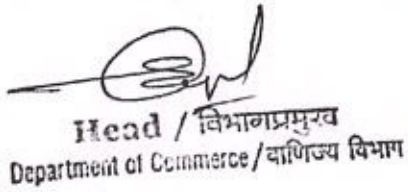 Head / विभागप्रमुख
Department of Commerce/वाणिज्य विभाग